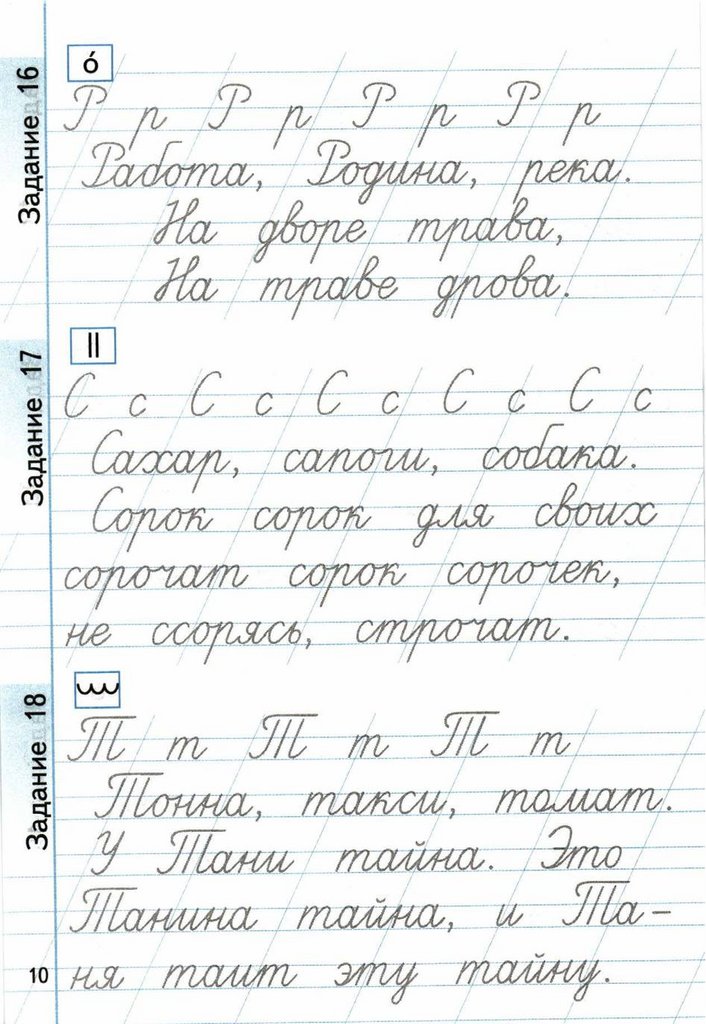 Задание 16
Р р Р р Р р Р р
Работа, Родина, река.
На дворе трава,
На траве дрова.
Задание 17
С с С с С с С с С с
Сахар, сапоги, собака.
Сорок сорок для своих
сорочат сорок сорочек,
не ссорясь, строчат.
Задание 18
Т т Т т Т т
Тонна, такси, томат.
У Тани тайна. Это
Танина тайна, и Та-
ня таит эту тайну.
10